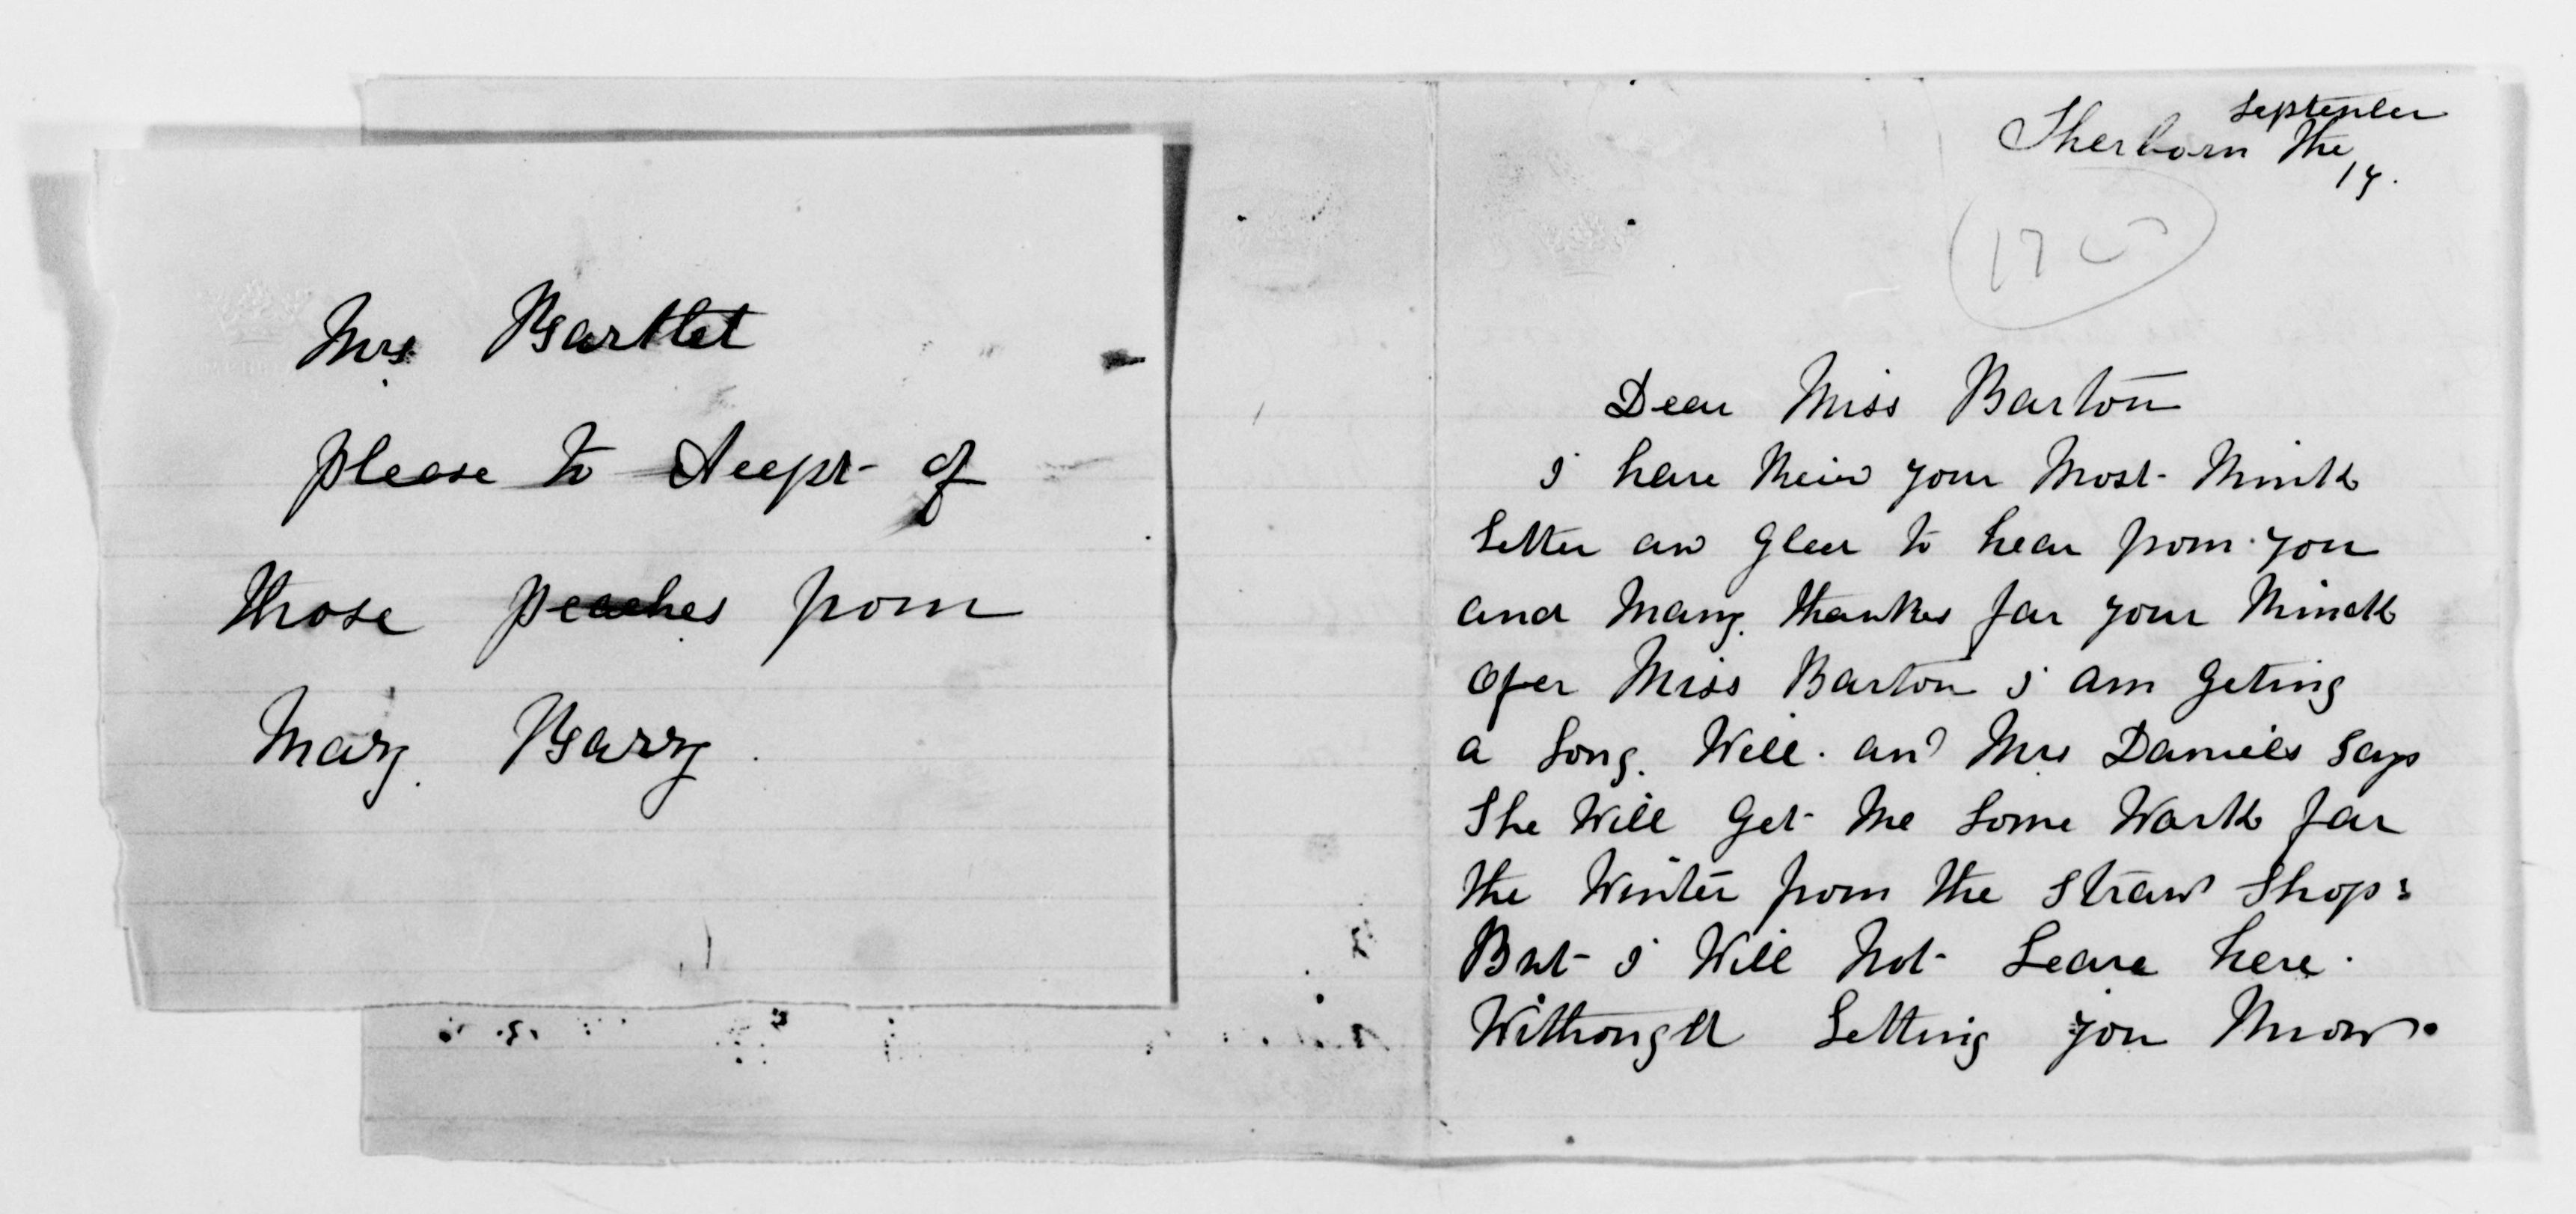 Mrs Bartlet
please to Acept of
those peaches from
Mary Barry.
September
Sherborn the
17.
Dear Miss Barton
i have your Most Kink
Letter an Glad to hear from you
and Many thankes far your Kinck
Ofer Miss Barton i am Geting
a Long. Well. and Mrs Daniels says
She Will Get me Some Wark far
the Winter from the Straw Shop:
But i Will Not Leave here.
Withought Letting you Know.